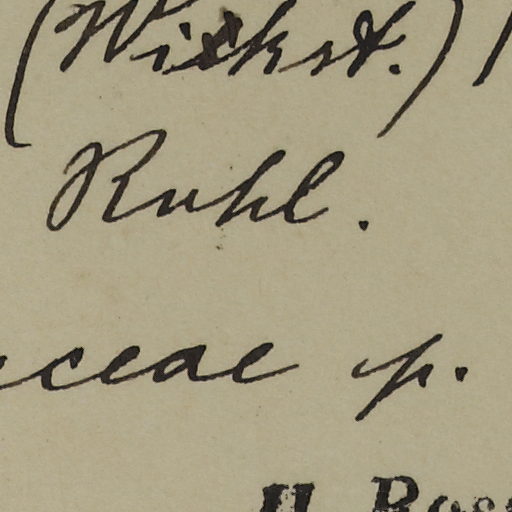 (Wikst.)
Ruhl.
ceae p.
H. Ros